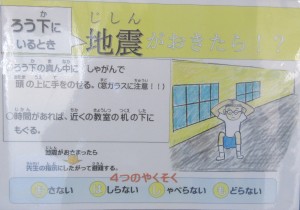 ろう下に
いるとき
地震がおきたら!?
ろう下の真ん中に しゃがんで
頭の上に手をのせる。(窓ガラスに注意!!)
○時間があれば、近くの教室の机の下に
もぐる。
地震がおさまったら
先生の指示にしたがって避難する。
4つのやくそく
さない
しらない
ゃべらない
どらない